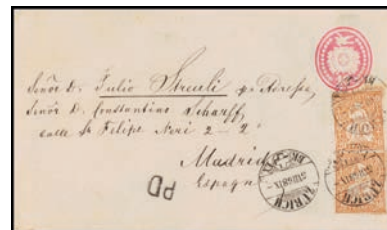 Señor D. Julio Strauli pr Adresse,
Señor D. Constantino Scharff
calle Sn Felipe Neri 2-2º
Madrid
Espagne
PD
ZÜRICH
ZÜRICH